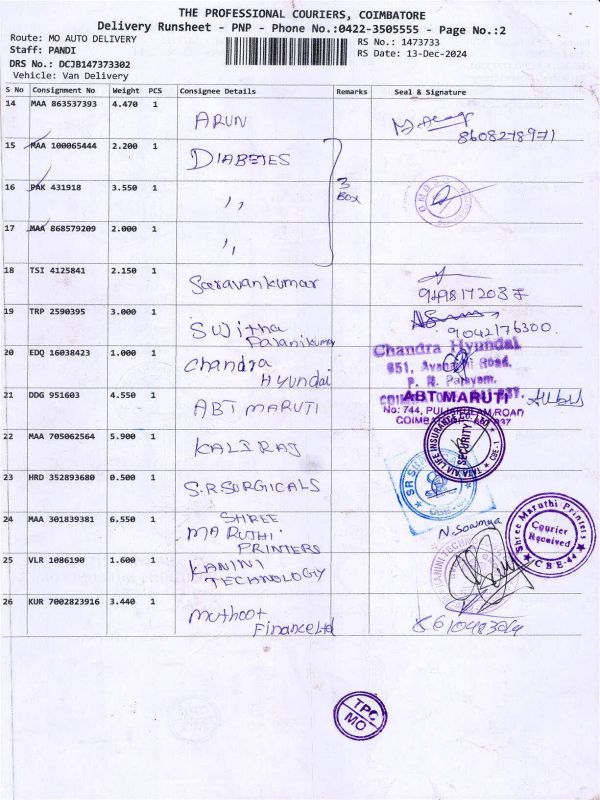 THE PROFESSIONAL COURIERS, COIMBATORE
Delivery Runsheet - PNP - Phone No.:0422-3505555 - Page No.:2
Route: MO AUTO DELIVERY
RS No.: 1473733
Staff: PANDI
RS Date: 13-Dec-2024
DRS No.: DCJB147373302
Vehicle: Van Delivery
S No Consignment No Weight PCS Consignee Details Remarks Seal & Signature
14 MAA 863537393 4.470 1 ARUN
8608278971
15 MAA 100065444 2.200 1 DIABETES
16 PAK 431918 3.550 1 ,, 3 BOX
17 MAA 868579209 2.000 1 ,,
18 TSI 4125841 2.150 1 Saravankumar
19 TRP 2590395 3.000 1 Sujitha Palanikumar
9042176300.
20 EDQ 16038423 1.000 1 Chandra Hyundai
Chandra Hyundai
21 DDG 951603 4.550 1 ABT MARUTI
ABT MARUTI
No: 744,
22 MAA 705062564 5.900 1 KALI RAJ
SECURITY
CBE-1
23 HRD 352893680 0.500 1 S.R.SURGICALS
24 MAA 301839381 6.550 1 SHREE MARUTHI PRINTERS
N. Sowmya
Shree Maruthi Printers
Courier Received
CBE-44
25 VLR 1086190 1.600 1 KANINI TECHNOLOGY
26 KUR 7002823916 3.440 1 Muthoot Finance Ltd
TPC
MO